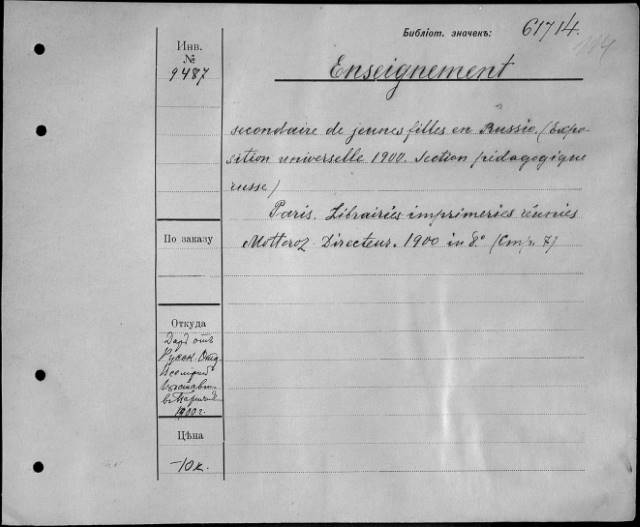 Библiот. значекъ: 61714.
Инв.
№
9487
Enseignement
secondaire de jeunes filles en Russie. (Expo-
sition universelle 1900. Section pédagogique
russe)
Paris. Librairies imprimeries réunies
Motteroz Directeur. 1900 in 8° (Стр. 7)
По заказу
Откуда
Даръ отъ
Русск. Отд.
Всемiрной
выставки
въ Парижѣ
1900 г.
Цѣна
10 к.